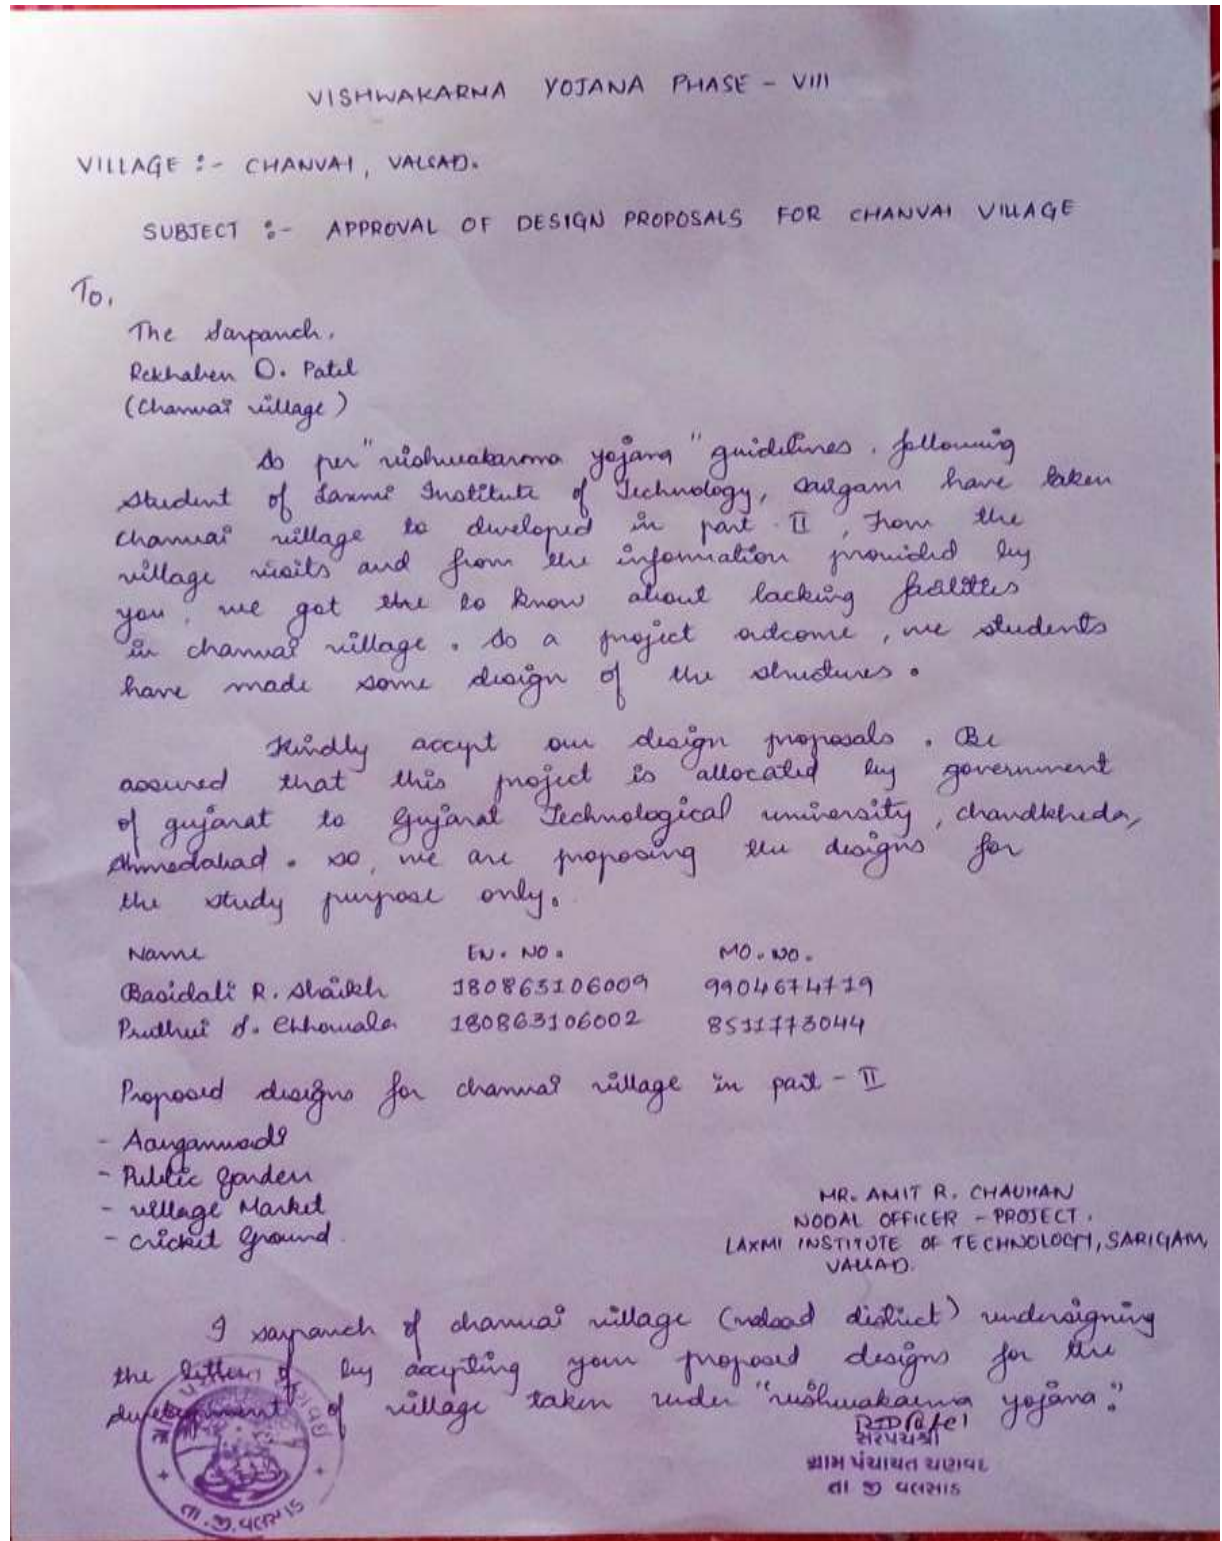 VISHWAKARMA YOJANA PHASE - VIII
VILLAGE :- CHANVAI, VALSAD.
SUBJECT :- APPROVAL OF DESIGN PROPOSALS FOR CHANVAI VILLAGE
To,
The Sarpanch.
Rekhaben D. Patel
(Chanvai village)
As per "vishwakarma yojana" guidelines, following
student of Laxmi Institute of Technology, sarigam have taken
chanvai village to developed in part II, From the
village visits and from the information provided by
you, we got the to know about lacking facilities
in chanvai village. As a project outcome, we students
have made some design of the structures.
Kindly accept our design proposals. Be
assured that this project is allocated by government
of gujarat to Gujarat Technological university, chandkheda,
Ahmedabad. so, we are proposing the designs for
the study purpose only.
Name EN. NO. MO. NO.
Basidali R. Shaikh 180863106009 9904674719
Pruthvi S. Chhowala 180863106002 8511773044
Proposed designs for chanvai village in part - II
- Aanganwadi
- Public Garden
- village Market
- cricket Ground.
MR. AMIT R. CHAUHAN
NODAL OFFICER - PROJECT.
LAXMI INSTITUTE OF TECHNOLOGY, SARIGAM,
VALSAD.
I sarpanch of chanvai village (valsad district) undersigning
the letter of by accepting your proposed designs for the
development of village taken under "vishwakarma yojana."
RDPatel
સરપંચશ્રી
ગ્રામ પંચાયત ચણવઇ
તા જી વલસાડ
તા.જી.વલસાડ